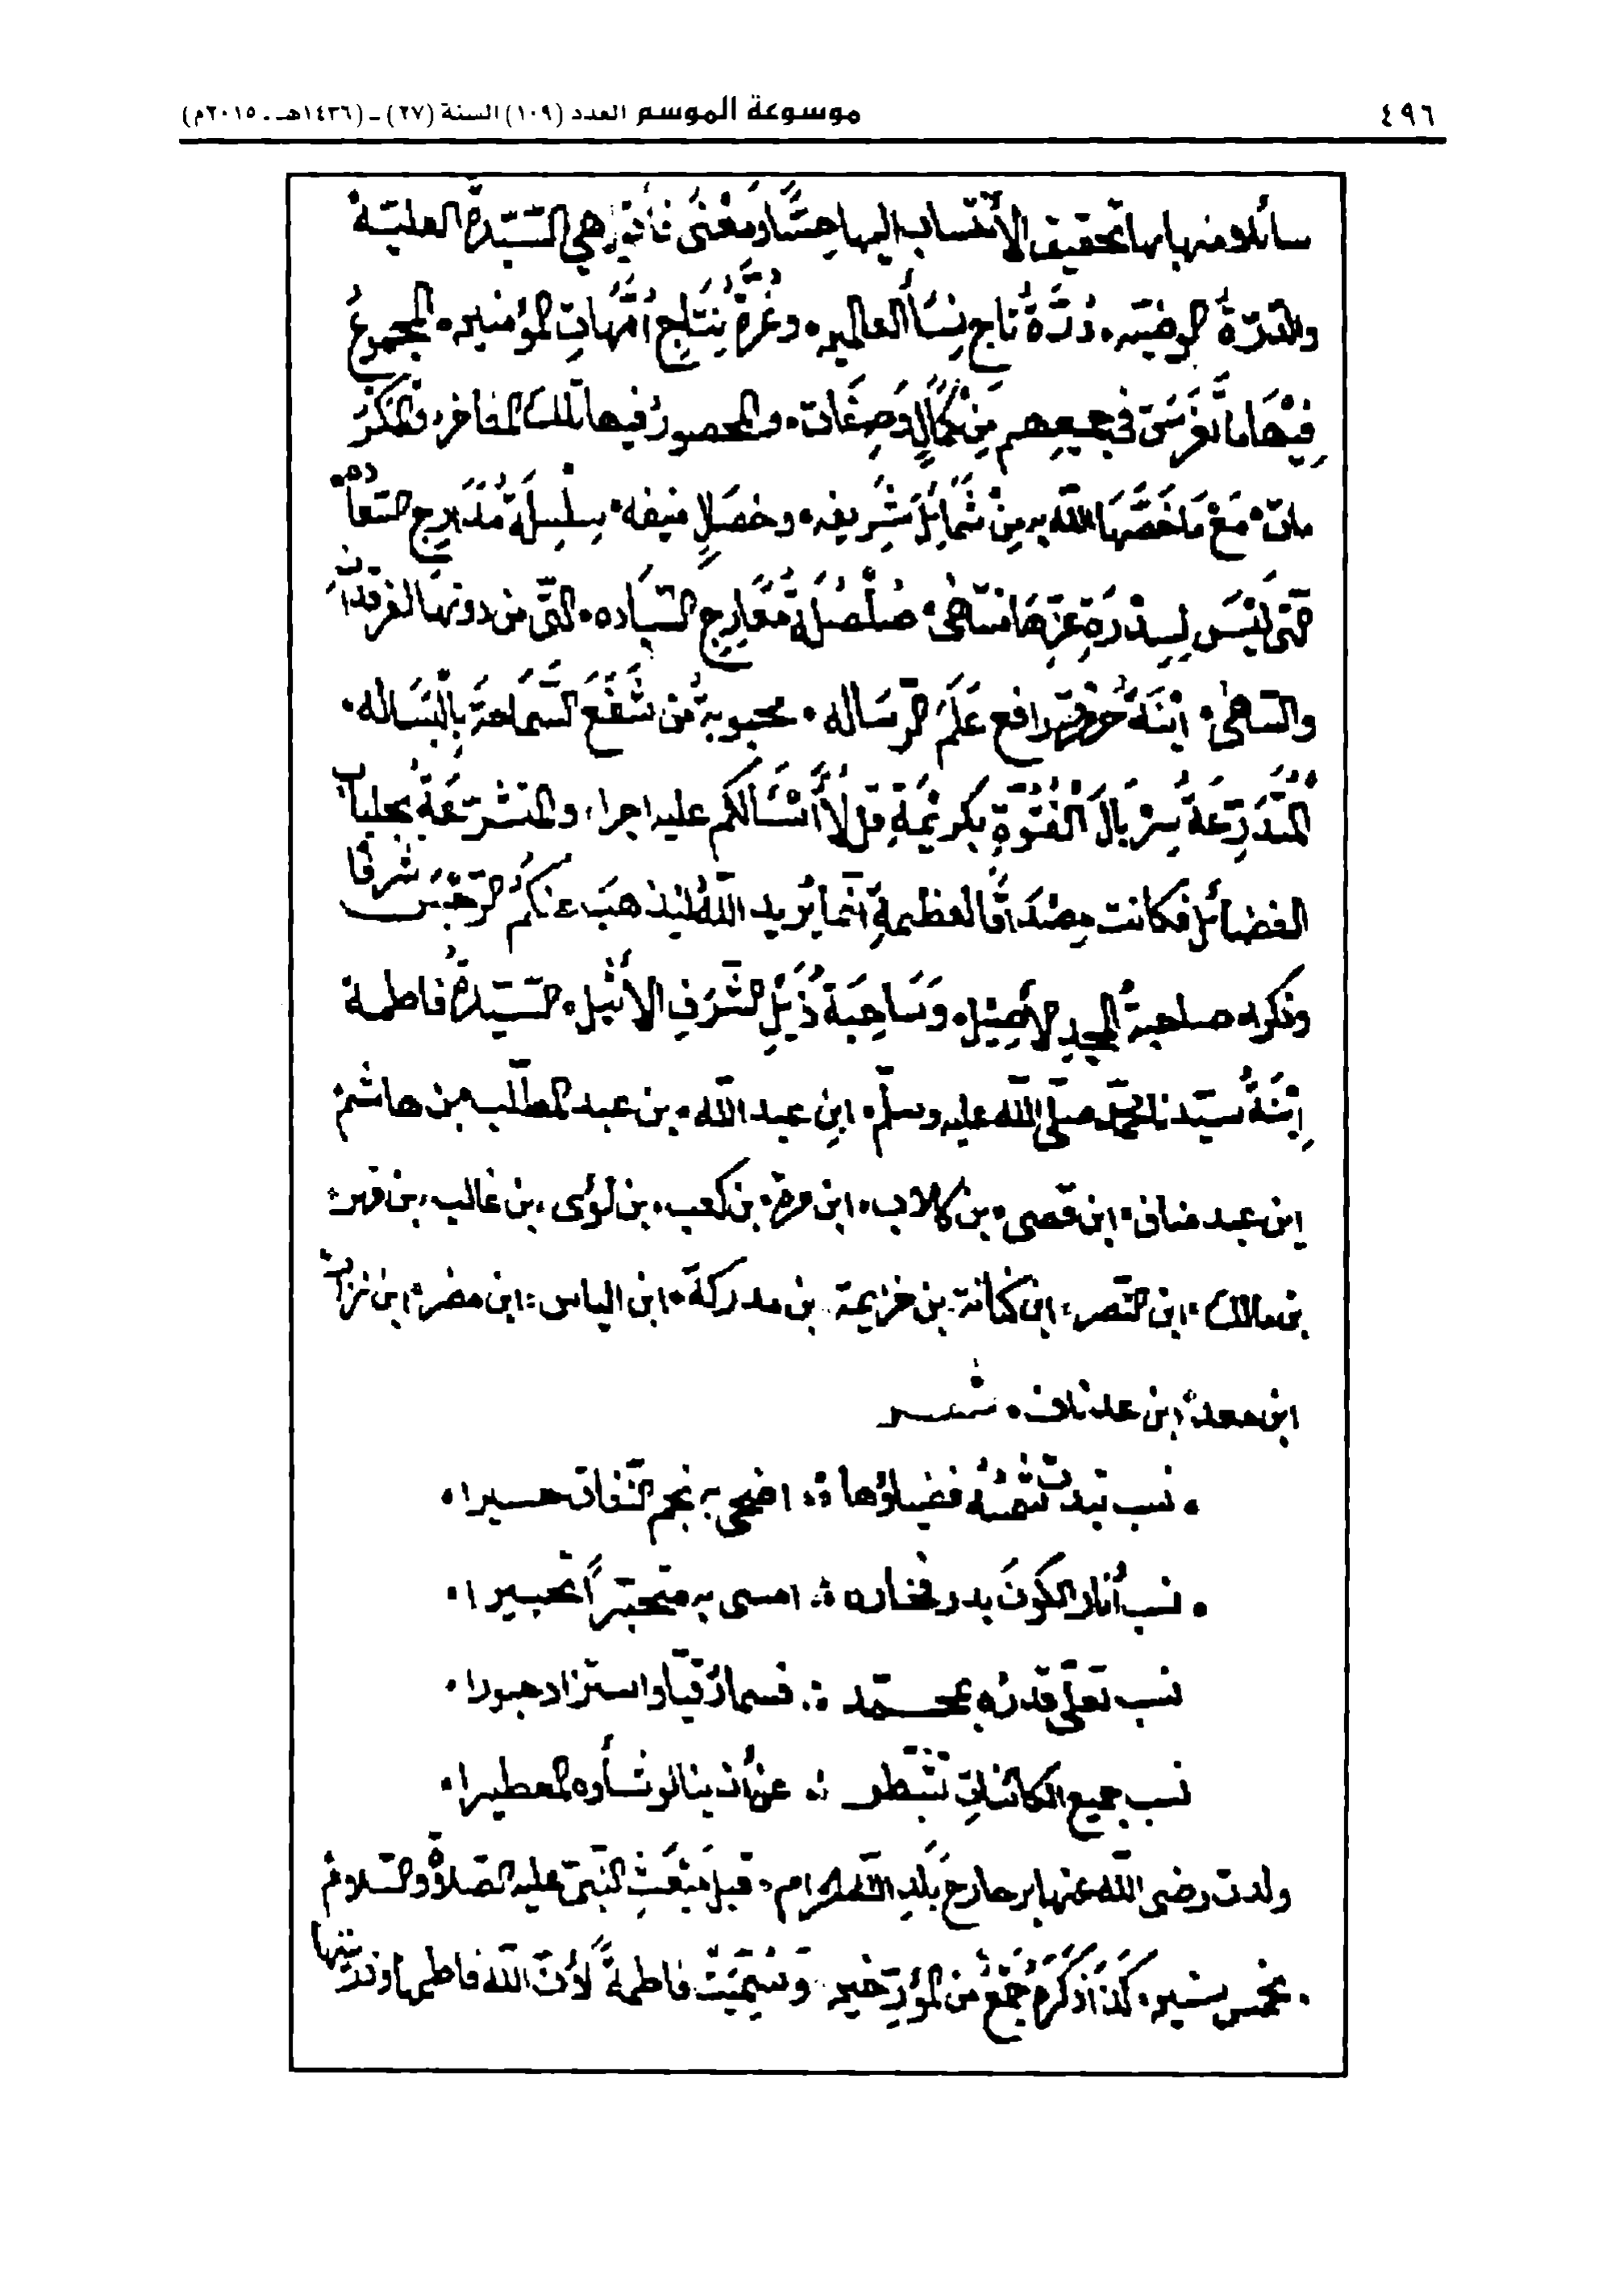 ٤٩٦
موسوعة الموسم العدد (١٠٩) السنة (٢٧) - (١٤٣٦هـ - ٢٠١٥م)
سائلا منها بها تحقيق الانتساب اليها حسًّا ومعنًى فأقول هي السَّيّدة العليّة
والدّرّة المضيّه، دُرَّةُ تاج نِسَأ العالمين، وغُرَّة نِتَاجِ أُمّهاتِ المؤمنين، المجموعُ
فِيْهَا ما تَفَرَّق في جميعهم مِنْ كمالٍ وَصِفَات، والمحصور فيها تلك المفاخر والمكْرُ
مات، مَعْ مَا خَصَّهَا الله به مِنْ شَمَائِل شَرِيفه، وخصَالٍ منيفه، سِلْسِلَةُ مَدَارِج السّعادة
الّتى لَيْسَ لِسِدْرَةِ عِزِّهَا منتاهى، صَلْصَلَةُ مَعَارِج السّيَاده، الّتى من دونها الفرقدان
والسّاهى، ابْنَةُ رافع عَلَم الرّسَاله، محبوبة من شَفَعَ السَّمَاحَةَ بِالْبَسَاله،
الْمُتَدَرِّعَةُ سِرْبَالَ الْفُتُوَّةِ بكريْمَةِ قل لَا أَسْئَالكم عليه اجرا، والمتشرّعَة بجلباب
الفضائل فكانت مِصْدَاقًا لعظيمةِ انّما يُريد اللهُ لِيذهبَ عنكُم الرّجْسَ شرفًا
وذكرا، صاحبةُ المجدِ الأصِيْل، وَسَاحِبَةُ ذَيْل الشَّرَفِ الاثيل، السّيّدةُ فاطمة
ابْنَةُ سيّدنا محمّد صلّى الله عليه وسلّم، ابنِ عبد الله، بن عبد المطّلب، بن هاشم
ابن عبد مناف، ابن قصى، بن كلاب، ابن مرة، بن كعب، بن لؤى، بن غالب، بن فهر
بن مالك، ابن النّضر، ابن كنانة، بن خزيمة، بن مدركة، ابن الياس، ابن مضر، ابن نزار
ابن معد، ابن عدنان، شعر
نسب تبدت شمسُه فضياؤها ∴ اضحى به نجم النّفاق حسيرا
نسب أنار الكونَ بدر فخاره ∴ امسى به متحيّرًا تحييرا
نسب تعلّى قدرُه بمحمّد ∴ فسما رُقيّا واستزاد حبورا
نسب جميع الكائناتِ تَشَطر ∴ عن أن ينالو شأوه المعطيرا
ولدت رضى الله عنها بِبَلَدِ الله الحرام، قبل مَبْعَثِ النّبيّ عليه الصّلاة والسّلام
بخمس سنين، كَذَا ذكرَهُ جَمْعٌ من المؤرّخين، وَسُمِّيَتْ فاطمةَ لأنّ الله فاطمها وذرّيّتها